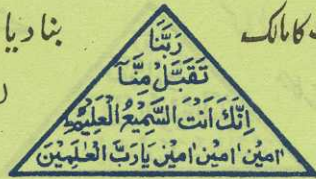 کا مالک
بنا دیا
رَبَّنَا
تَقَبَّلْ مِنَّآ
اِنَّکَ اَنْتَ السَّمِیْعُ الْعَلِیْمُ
اٰمِیْن اٰمِیْن اٰمِیْن یَا رَبَّ الْعٰلَمِیْنَ